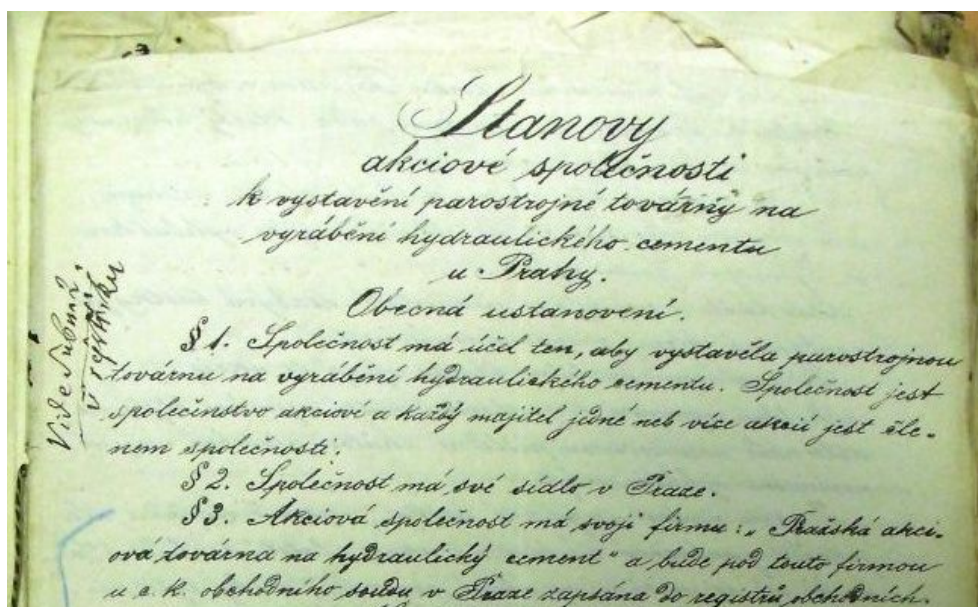 Stanovy
akciové společnosti
k vystavění parostrojné továrny na
vyrábění hydraulického cementu
u Prahy.
Obecná ustanovení.
§ 1. Společnost má účel ten, aby vystavěla parostrojnou
továrnu na vyrábění hydraulického cementu. Společnost jest
společinstvo akciové a každý majitel jedné neb více akcií jest čle-
nem společnosti.
§ 2. Společnost má své sídlo v Praze.
§ 3. Akciová společnost má svoji firmu: „Pražská akci-
ová továrna na hydraulický cement" a bude pod touto firmou
u c. k. obchodního soudu v Praze zapsána do registrů obchodních.
Vide
v rejstříku